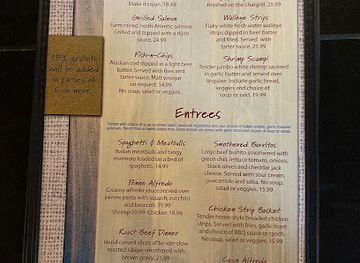 Make it cajun. 19.49
Grilled Salmon
Farm raised north Atlantic salmon
Grilled and topped with a dijon
sauce. 24.99
Fish-n-Chips
Alaskan cod dipped in a light beer
batter. Served with fries and
tarter sauce. Malt vinegar
on request. 14.99
No soup, salad or veggies.
finished on the chargrill.
Walleye Strips
Flaky white fresh water walleye
strips dipped in beer batter
and fried. Served with
tarter sauce. 21.99
Shrimp Scampi
Tender jumbo white shrimp sauteed
in garlic butter and served over
linguine. Include garlic bread,
veggies and choice of
soup or salad. 19.99
18% gratuity
will be added
to parties of
6 or more.
Entrees
Spaghetti & Meatballs
Italian meatballs and tangy
marinara loaded on a bed of
spaghetti. 14.99
Penne Alfredo
Creamy alfredo sauce served over
penne pasta with squash, zucchini
and broccoli. 15.99
Shrimp 20.99 Chicken 18.99
Roast Beef Dinner
Hand carved slices of tender slow
roasted clove smothered with
brown gravy. 21.99
Smothered Burritos
Large beef burrito smothered with
green chili, lettuce tomato, onions,
black olives and cheddar jack
cheese. Served with sour cream,
guacamole and salsa. No soup,
salad or veggies. 15.99
Chicken Strip Basket
Tender home-style breaded chicken
strips. Served with fries, garlic
toast and choice of
BBQ sauce or ranch.
No soup, salad or veggies.
Cajun Alfredo